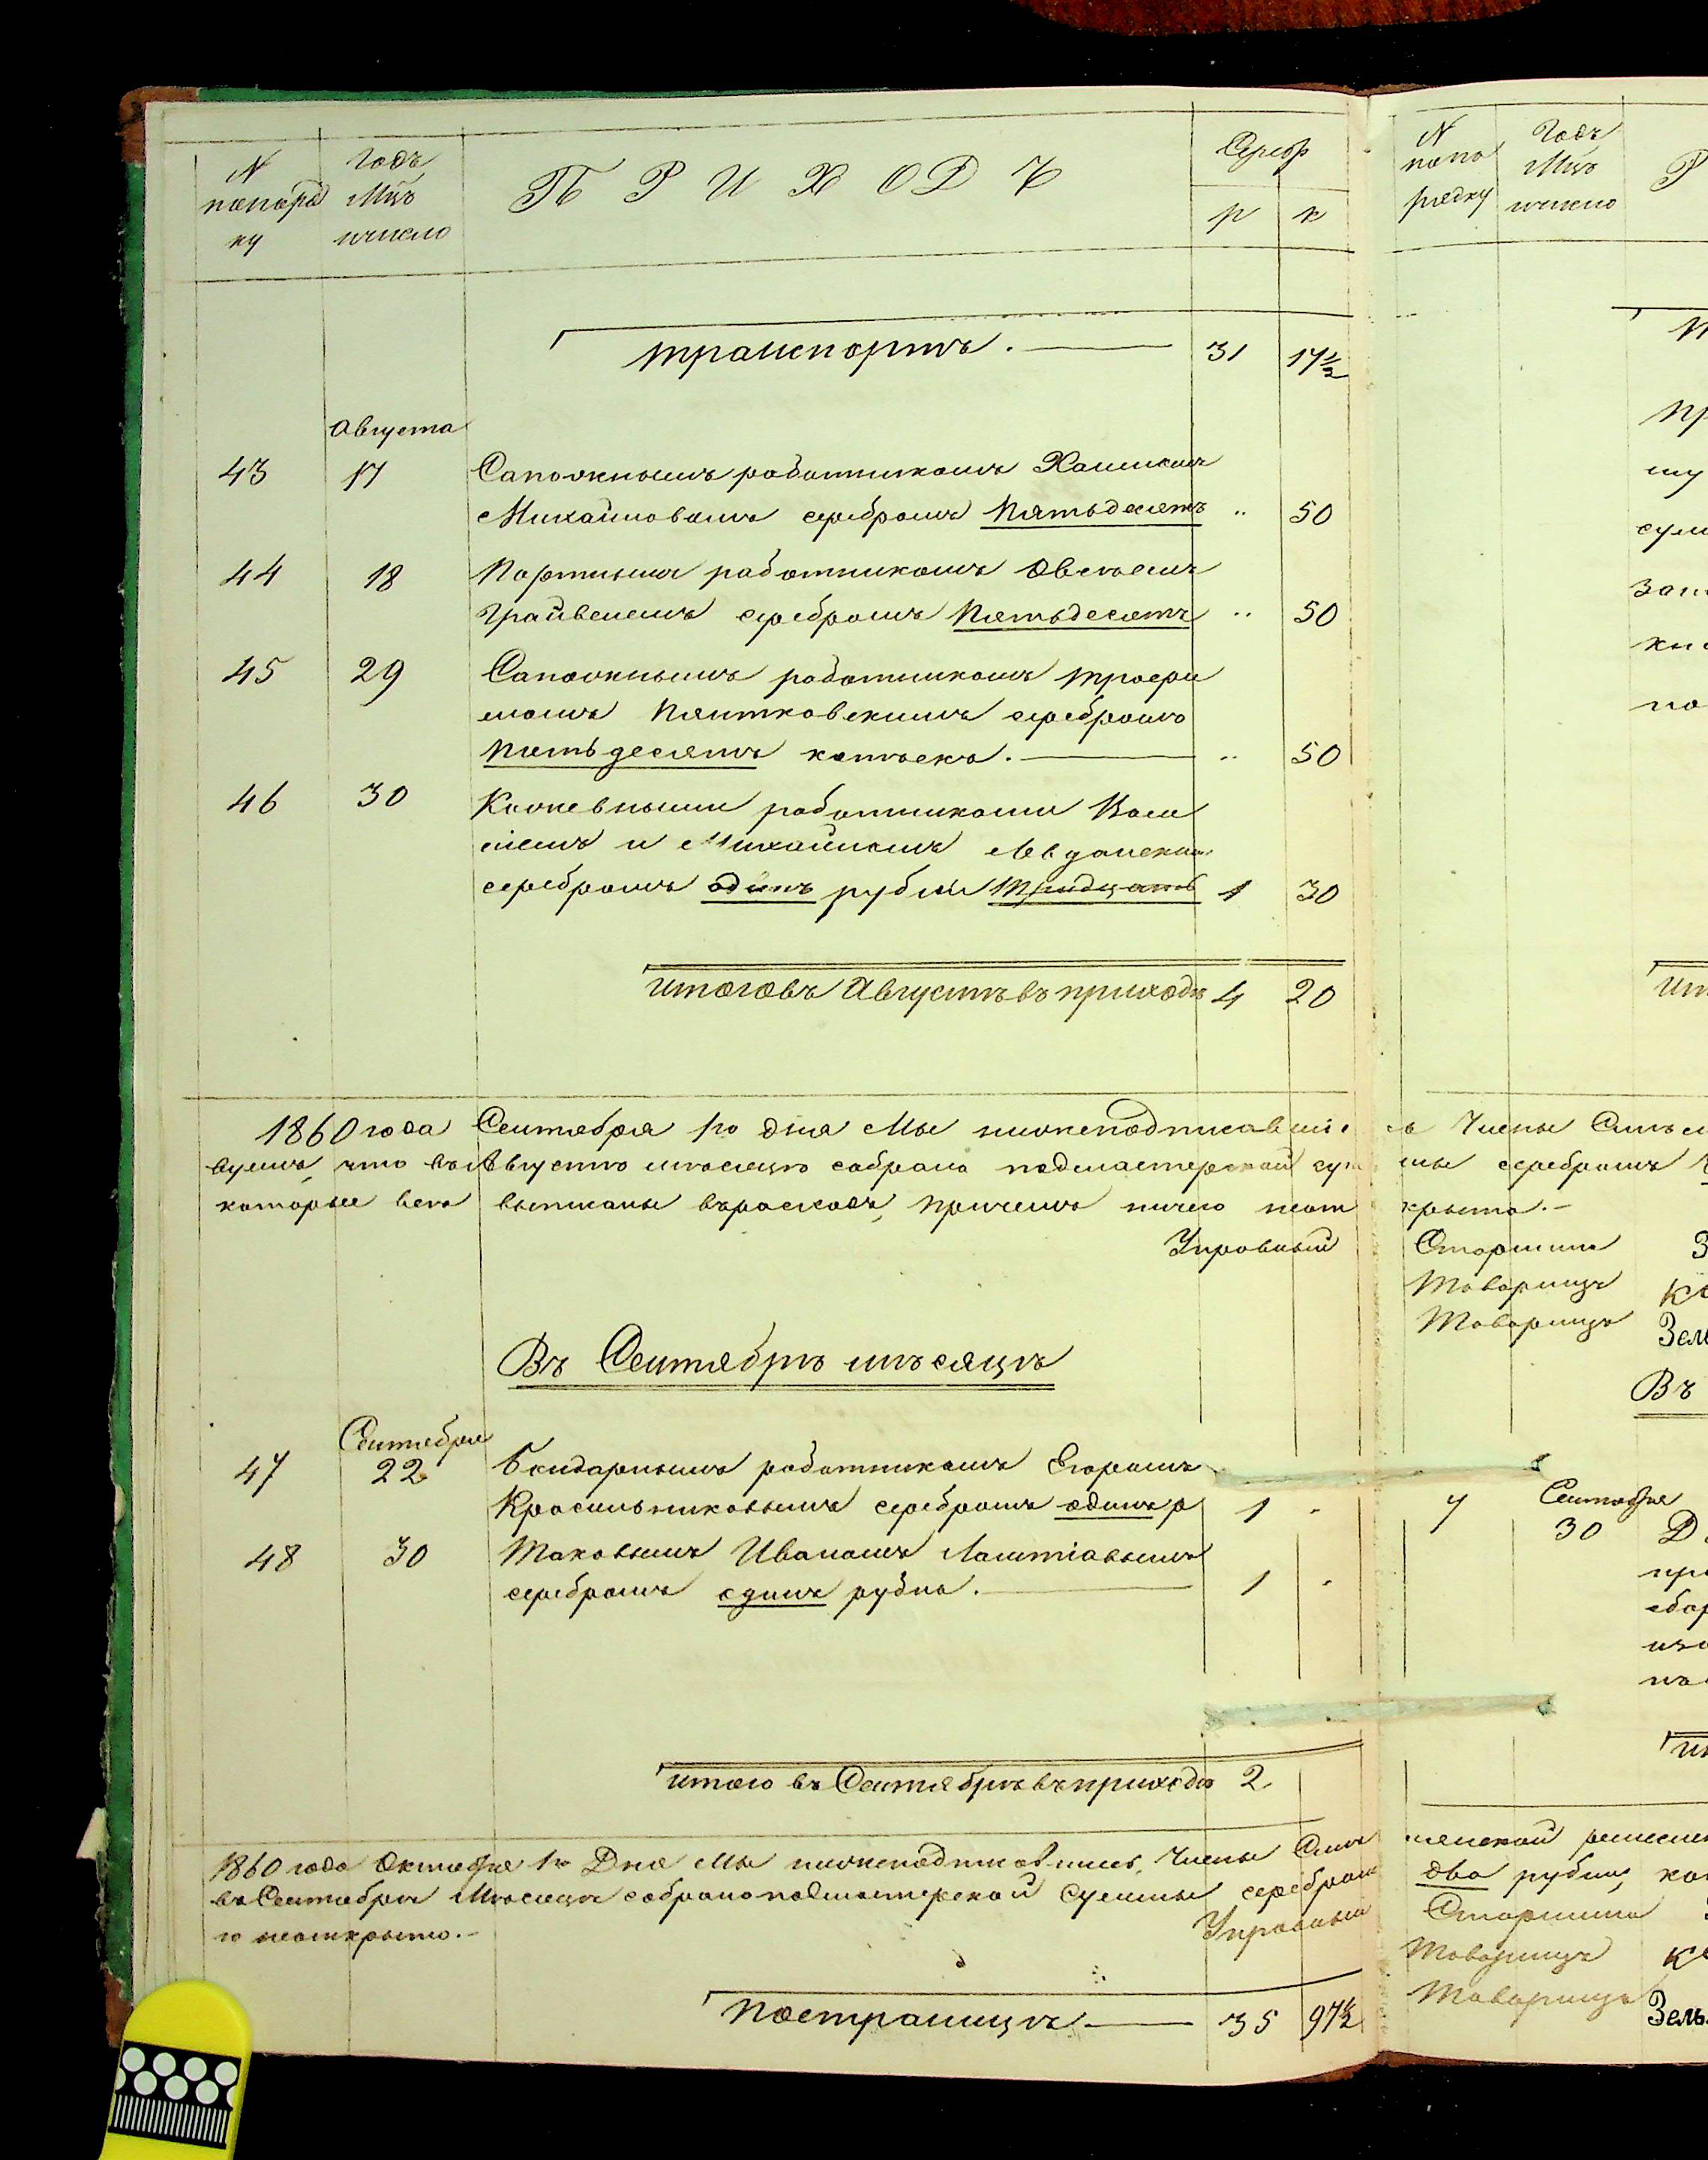 N
попоряд
ку
Годъ
Мцъ
и число
П Р И Х О Д Ъ
Сереб
р к
транспортъ. 31 17½
Августа
43 17 Сапожнымъ работникомъ
Михайловымъ серебромъ Пятьдесятъ .. 50
44 18 Портнымъ работникомъ
серебромъ Пятьдесятъ .. 50
45 29 Сапожнымъ работникомъ Трофи
момъ Пятковскимъ серебромъ
Пятьдесятъ копѣекъ. .. 50
46 30 работниками Васи
ліемъ и Михайломъ
серебромъ одинъ рубль Тридцать 1 30
итоговъ Августѣ въ приходѣ 4 20
1860 года Сентября 1го дня Мы нижеподписавшіе
вуемъ, что въ Августѣ мѣсяцѣ собрано подмастерской сум
которые всѣ выписаны върасходъ, причемъ ничего неот
Управный
Въ Сентябрѣ мѣсяцѣ
Сентября
47 22 Бондарнымъ работникомъ Егоромъ
Красильниковымъ серебромъ одинъ р 1 -
48 30 Таковымъ Иваномъ
серебромъ одинъ рубль. 1 -
итого въ Сентябрѣ въ приходѣ 2.
1860 года Октября 1го Дня Мы нижеподписавшіесь, Члены Смѣ
въ Сентябрѣ Мѣсяцѣ собрано подмастерской Суммы серебром
го неоткрыто.-
Управный
Пострашицѣ 35 97½
N
попо
рядку
Годъ
Мцъ
и число
Р
Пр
му
сум
зап
кни
по
ит
ъ Члены Смѣ
мы серебромъ
крыто.-
Старшина З
Товарищъ
Товарищъ Зель
Въ
Сентября
7 30
пр
сбор
мянской ремеслен
два рубли, ко
Старшина
Товарищъ
Товарищъ Зель